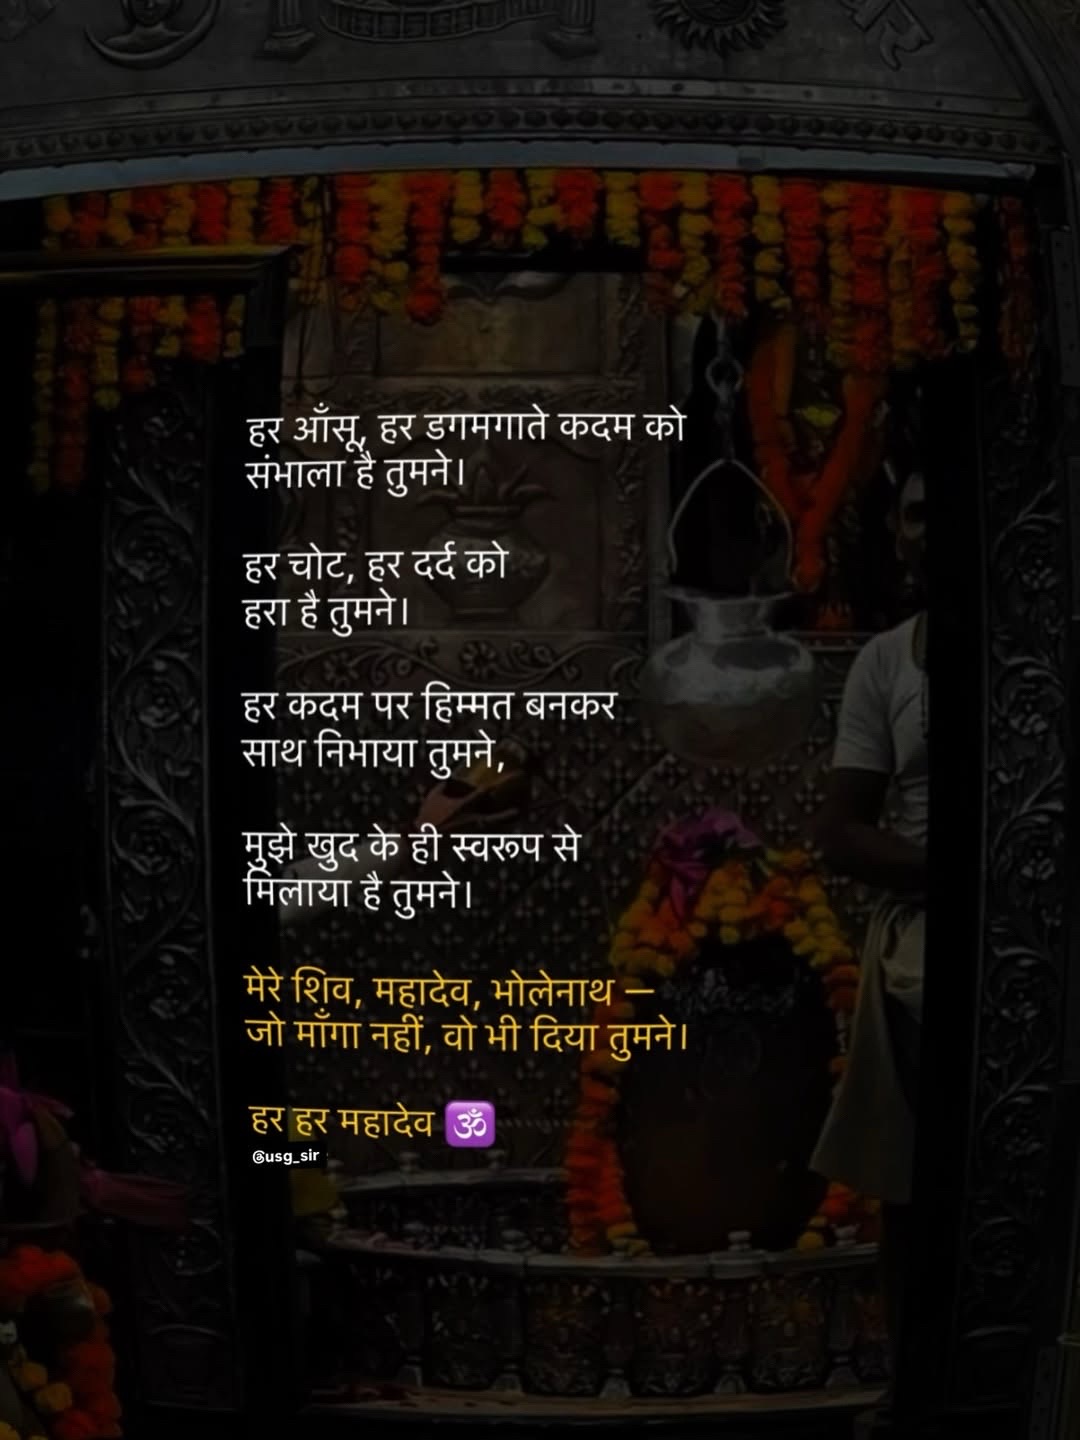 हर आँसू, हर डगमगाते कदम को
संभाला है तुमने।
हर चोट, हर दर्द को
हरा है तुमने।
हर कदम पर हिम्मत बनकर
साथ निभाया तुमने,
मुझे खुद के ही स्वरूप से
मिलाया है तुमने।
मेरे शिव, महादेव, भोलेनाथ —
जो माँगा नहीं, वो भी दिया तुमने।
हर हर महादेव 🕉️
@usg_sir